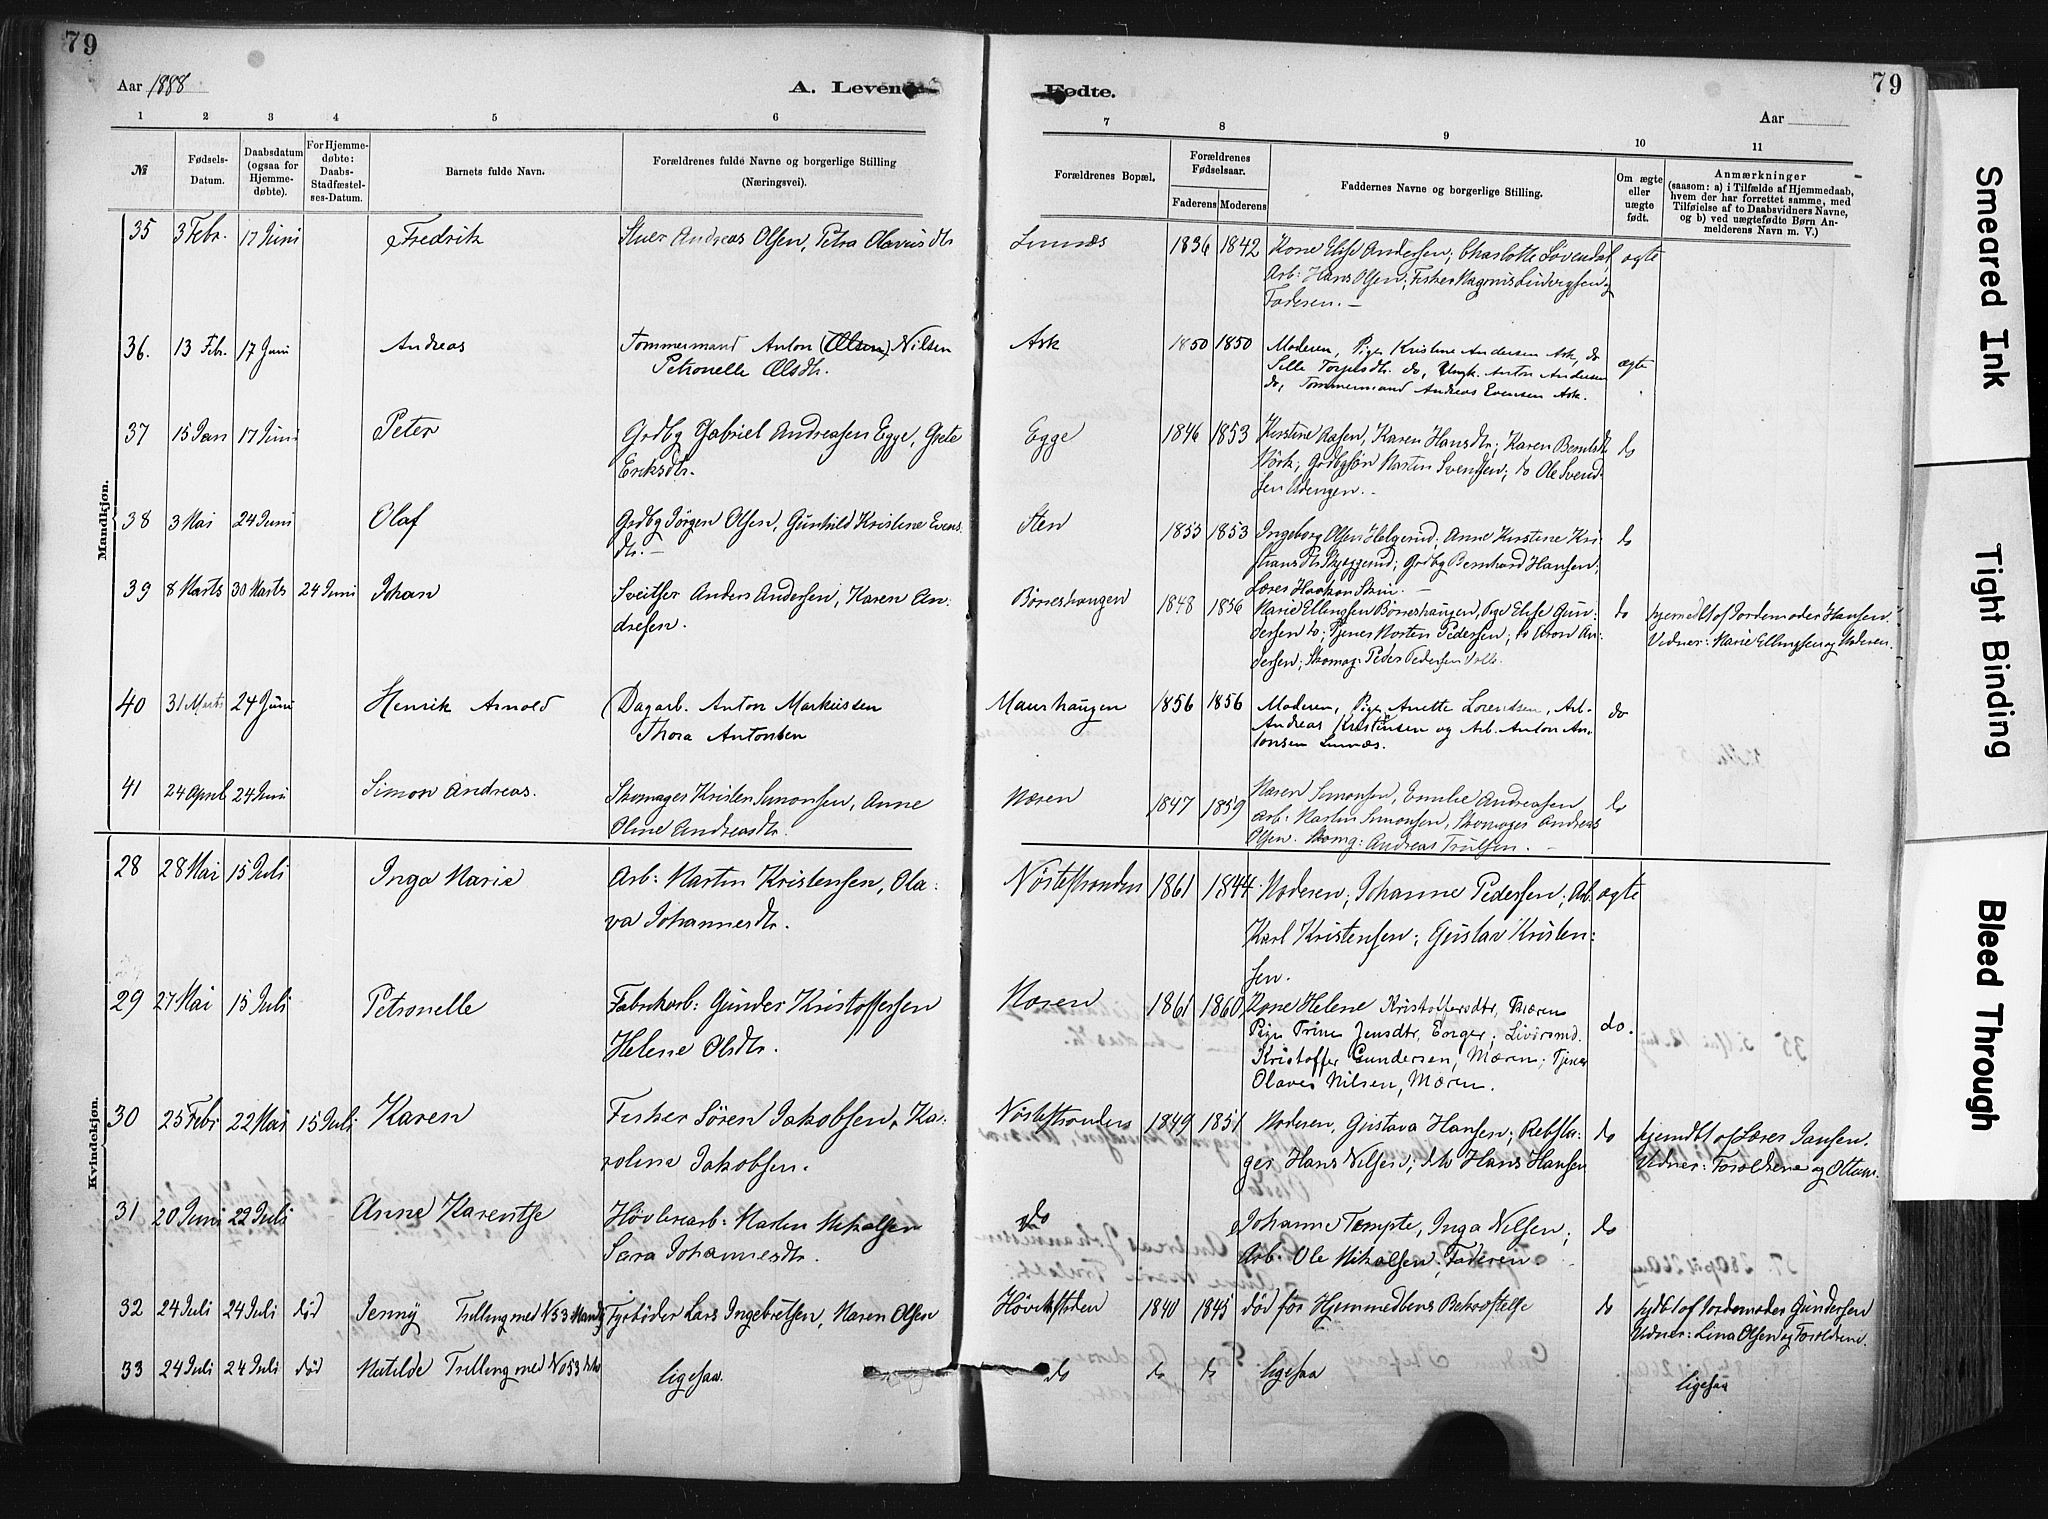 79
79
Aar 1888
A. Levende
Fødte.
Aar
1 2 3 4 5 6 7 8 9 10 11
№
Fødsels-Datum.
Daabsdatum (ogsaa for Hjemmedøbte).
For Hjemmedøbte: Daabs-Stadfæstelses-Datum.
Barnets fulde Navn.
Forældrenes fulde Navne og borgerlige Stilling (Næringsvei).
Forældrenes Bopæl.
Forældrenes Fødselsaar.
Faderens Moderens
Faddernes Navne og borgerlige Stilling.
Om ægte eller uægte født.
Anmærkninger
(saasom: a) i Tilfælde af Hjemmedaab, hvem der har forrettet samme, med Tilføielse af to Daabsvidners Navne, og b) ved uægtefødte Børn Anmelderens Navn m. V.)
Mandkjøn.
35 3 Febr. 17 Juni Fredrik Stuer Andreas Olsen, Petra Olavusdtr 1836 1842 Kone Elise Andersen; Charlotte Lövendal, ægte
Arb: Hans Olsen; Fisker Magnus
Faderen.
36. 13 Febr. 17 Juni Andreas Tømmermand Anton (Olsen) Nilsen Ask 1850 1850 Moderen, Pige Kristine Andersen Ask, do ægte
Petronelle Olsdtr. do, Ungk. Anton Andersen
do, Tømmermand Andreas Evensen Ask.
37 15 Jan 17 Juni Peter Grdbg Gabriel Andreasen Egge, Grete Egge 1846 1853 Kirstine Aasen, Karen Hansdtr; Karen do
Eriksdtr. Mörk; Grdbgsön Martin Svendsen; do Ole Svend-
sen
38 3 Mai 24 Juni Olaf Grdbg Jörgen Olsen, Gunhild Kristine Evens- Sten 1853 1853 Ingeborg Olsen Helgerud; Anne Kirstine Kri- do
dtr. Grdbg Bernhard Hansen;
Lærer Haakon
39 8 Marts 30 Marts 24 Juni Johan Sveitser Anders Andersen, Karen An- Börreshaugen 1848 1856 Marie Ellingsen Börreshaugen, Pige Elise Gun- do hjemdbt af Jordemoder Hansen.
dresen. dersen do; Tjener Morten Pedersen; do Aron An- Vidner: Marie Ellingsen og Moderen.
dersen; Skomag: Peder Pedersen
40 31 Marts 24 Juni Henrik Arnold Dagarb. Anton Markussen Maurhaugen 1856 1856 Moderen, Pige Anette Lorentsen, Arb. do
Thora Antonsen Andreas Kristensen og Arb. Anton An-
tonsen
41 24 April 24 Juni Simon Andreas. Skomager Kristen Simonsen, Anne Næren 1847 1859 Maren Simonsen, Emilie Andreasen do
Oline Andreasdtr. Arb: Martin Simonsen, Skomager Andreas
Olsen. Skomg: Andreas Trulsen.
Kvindekjøn.
28 28 Mai 15 Juli Inga Maria Arb: Martin Kristensen, Ola- Nöstestranden 1861 1844 Moderen; Johanne Pedersen; Arb. ægte
va Johannesdtr. Karl Kristensen; Gustav Kristen-
sen.
29 27 Mai 15 Juli Petronelle Fabrikarb: Gunder Kristoffersen Næren 1861 1860 Kone Helene Kristoffersdtr, Mæren do.
Helene Olsdtr. Pige Trine Jensdtr, Enger; Livörsmd.
Kristoffer Gundersen, Mæren; Tjener
Olaves Nilsen, Mæren.
30 25 Febr 22 Mai 15 Juli Karen Fisker Sören Jakobsen, Ka- Nöstestranden 1849 1851 Moderen, Gustava Hansen; Rebsla- do hjemdbt af Lærer Jansen.
roline Jakobsen. ger Hans Nilsen; do Hans Hansen Vidner: Forældrene og
31 20 Juni 22 Juli Anne Karentse Hövleriarb: Martin Nikolaisen do Johanne Tempte, Inga Nilsen; do
Sara Johannesdtr. Arb. Ole Nikolaisen; Faderen.
32 24 Juli 24 Juli död Jenny Trilling med N 53 Mandk Fyrböder Lars Ingebretsen, Maren Olsen 1840 1845 död för Hjemmedbens Bekræftelse do hjdbt af Jordemoder Gundersen
Vidner: Lina Olsen og Forældrene.
33 24 Juli 24 Juli död Matilde Trilling med No 53 ligesaa. do do do ligesaa ligesaa
Smeared Ink
Tight Binding
Bleed Through